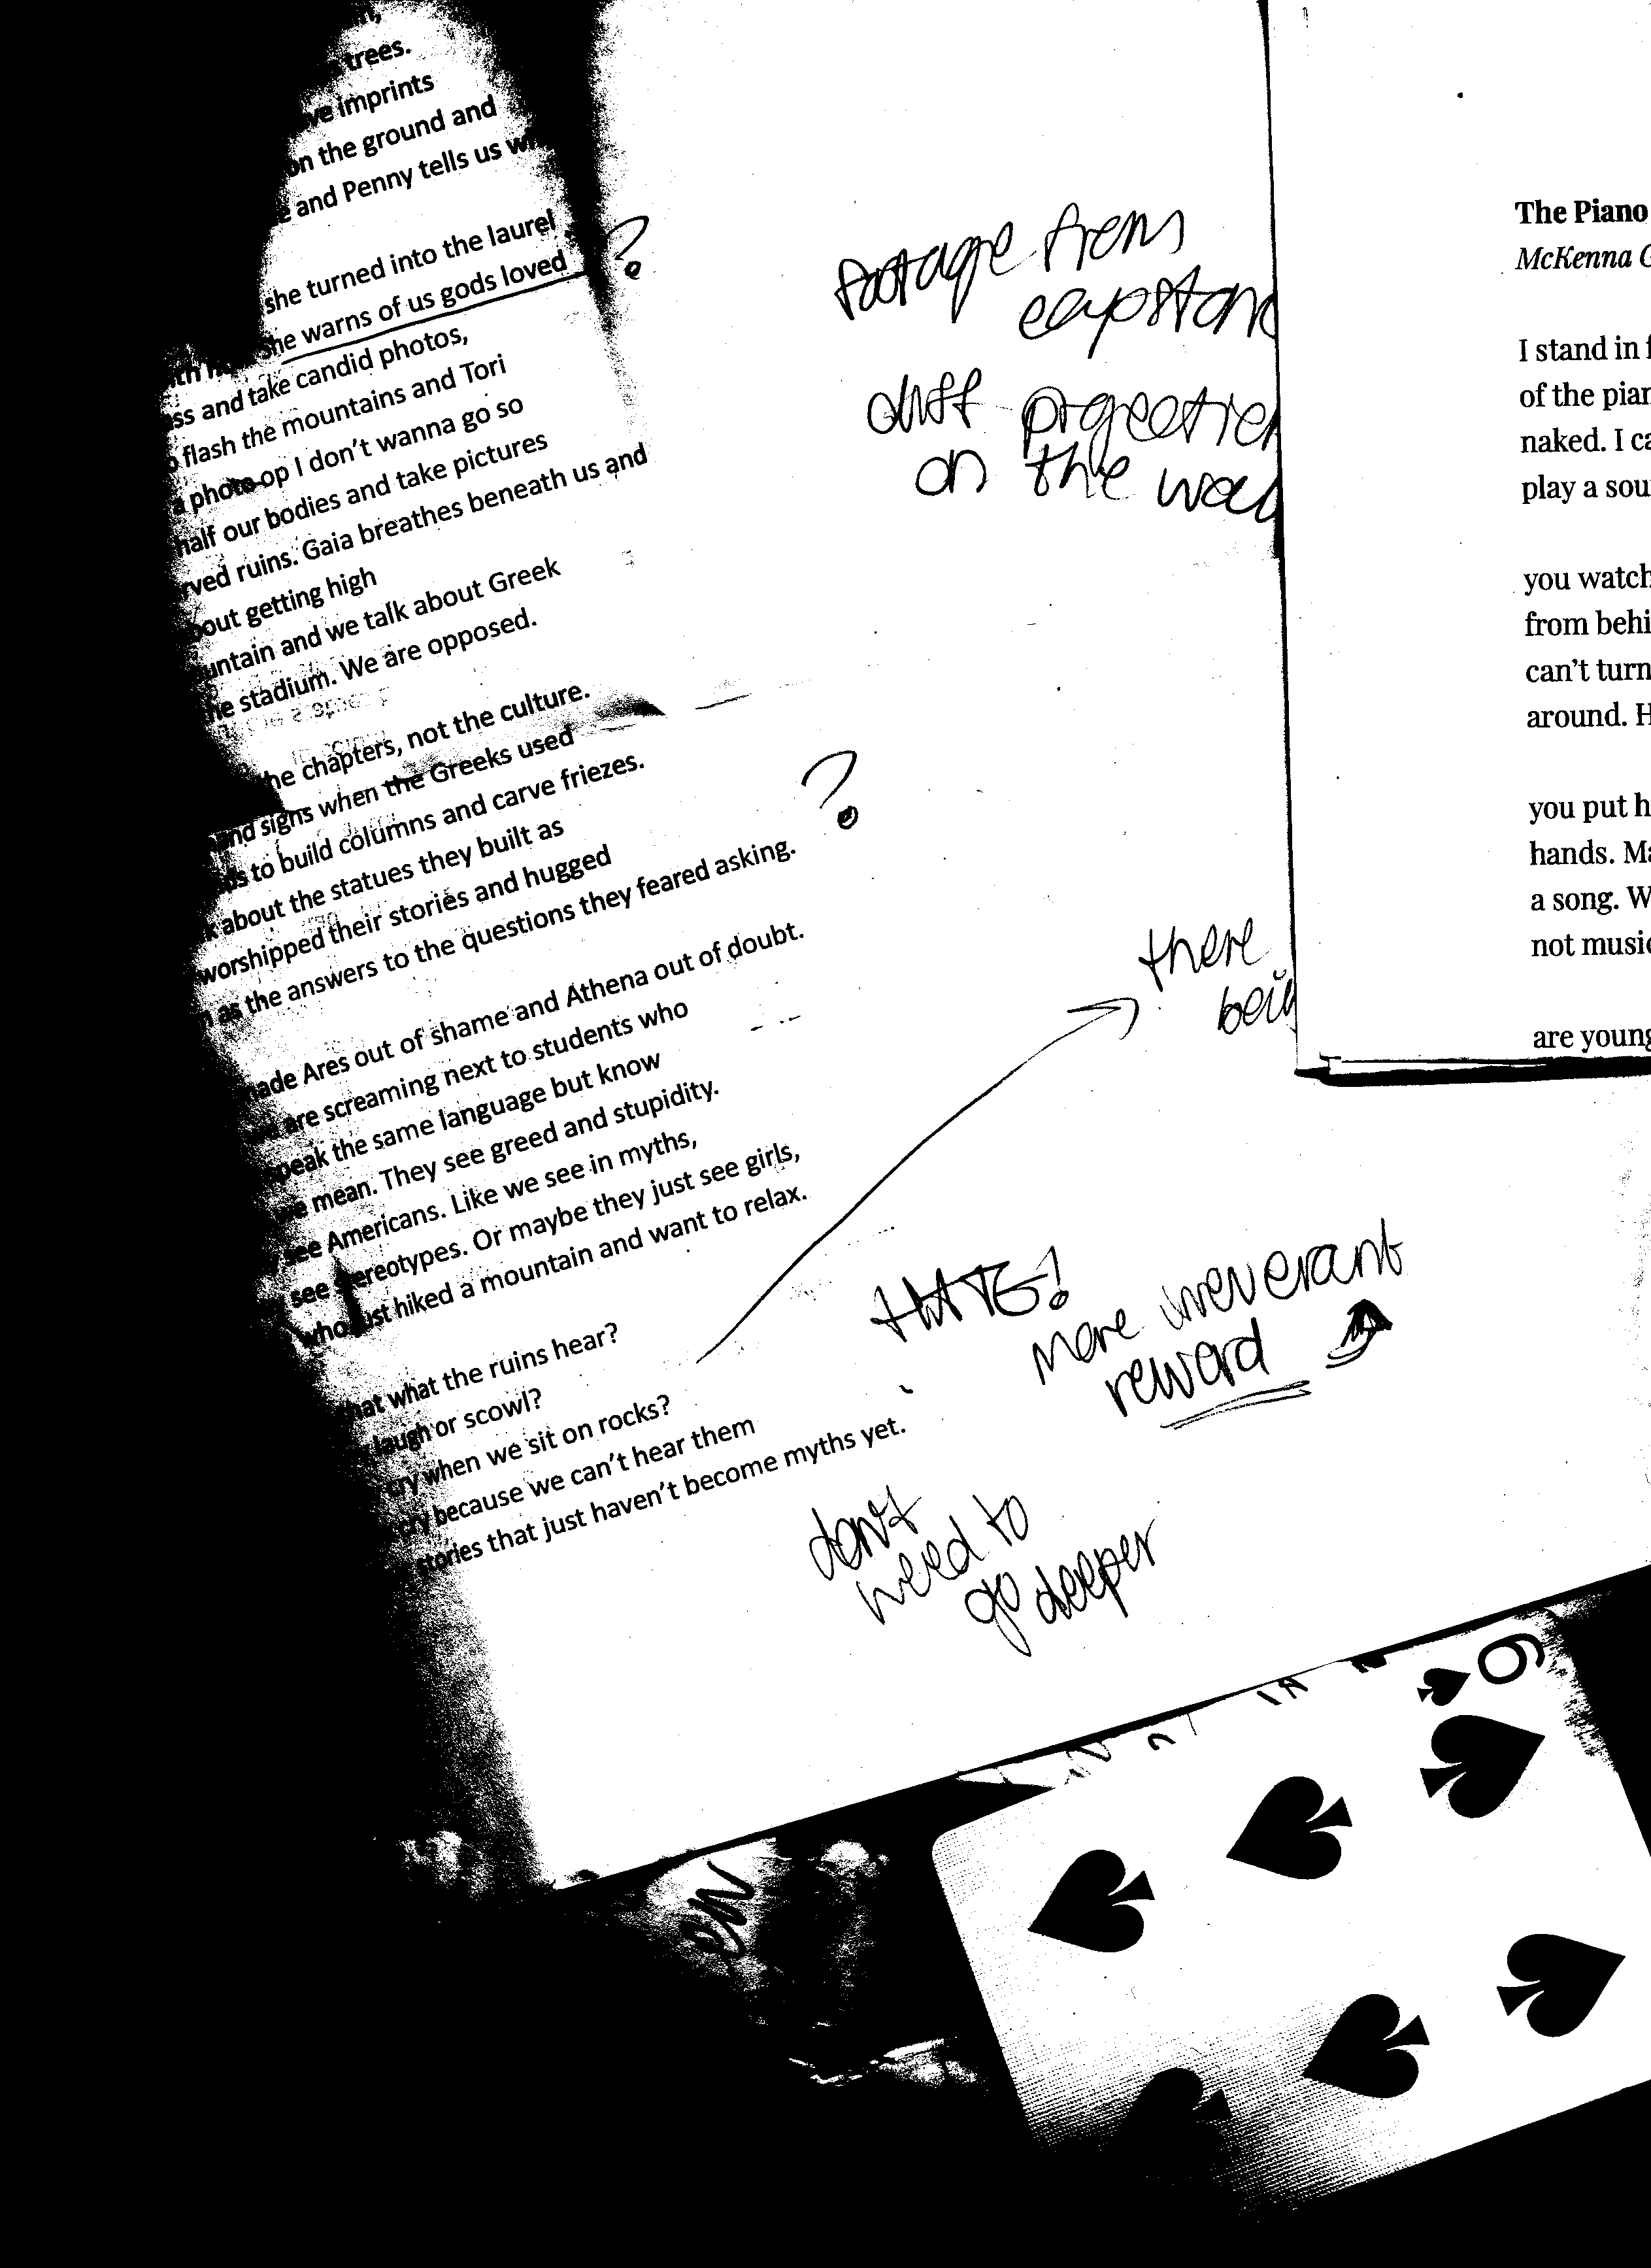 trees.
imprints
on the ground and
and Penny tells us
she turned into the laurel
she warns of us gods loved ?
and take candid photos,
flash the mountains and Tori
a photo-op I don't wanna go so
half our bodies and take pictures
ruins. Gaia breathes beneath us and
getting high
and we talk about Greek
the stadium. We are opposed.
the chapters, not the culture.
signs when the Greeks used
to build columns and carve friezes.
about the statues they built as
worshipped their stories and hugged
as the answers to the questions they feared asking. ?
Ares out of shame and Athena out of doubt.
are screaming next to students who
speak the same language but know
we mean. They see greed and stupidity.
see Americans. Like we see in myths,
see stereotypes. Or maybe they just see girls,
who just hiked a mountain and want to relax.
what the ruins hear?
laugh or scowl?
cry when we sit on rocks?
cry because we can't hear them
stories that just haven't become myths yet.
footage from
diff projection
on the
there
HATE!
more irreverant
reward
don't
need to
go deeper
The Piano
McKenna G
I stand in
of the
naked. I
play a
you watch
from
can't turn
around.
you put
hands.
a song.
not
are young
6